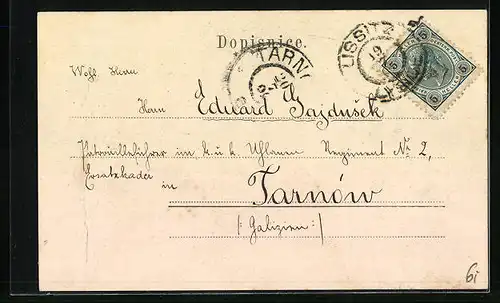 Dopisnice.
TARN
USSITZ
19
5 5
Wohl. Herrn
Herrn Eduard Gajdušek
Patrouilleführer im k. u. k. Uhlanen Regiment Nr 2,
Ersatzkader
in Tarnów
(: Galizien :)
6i